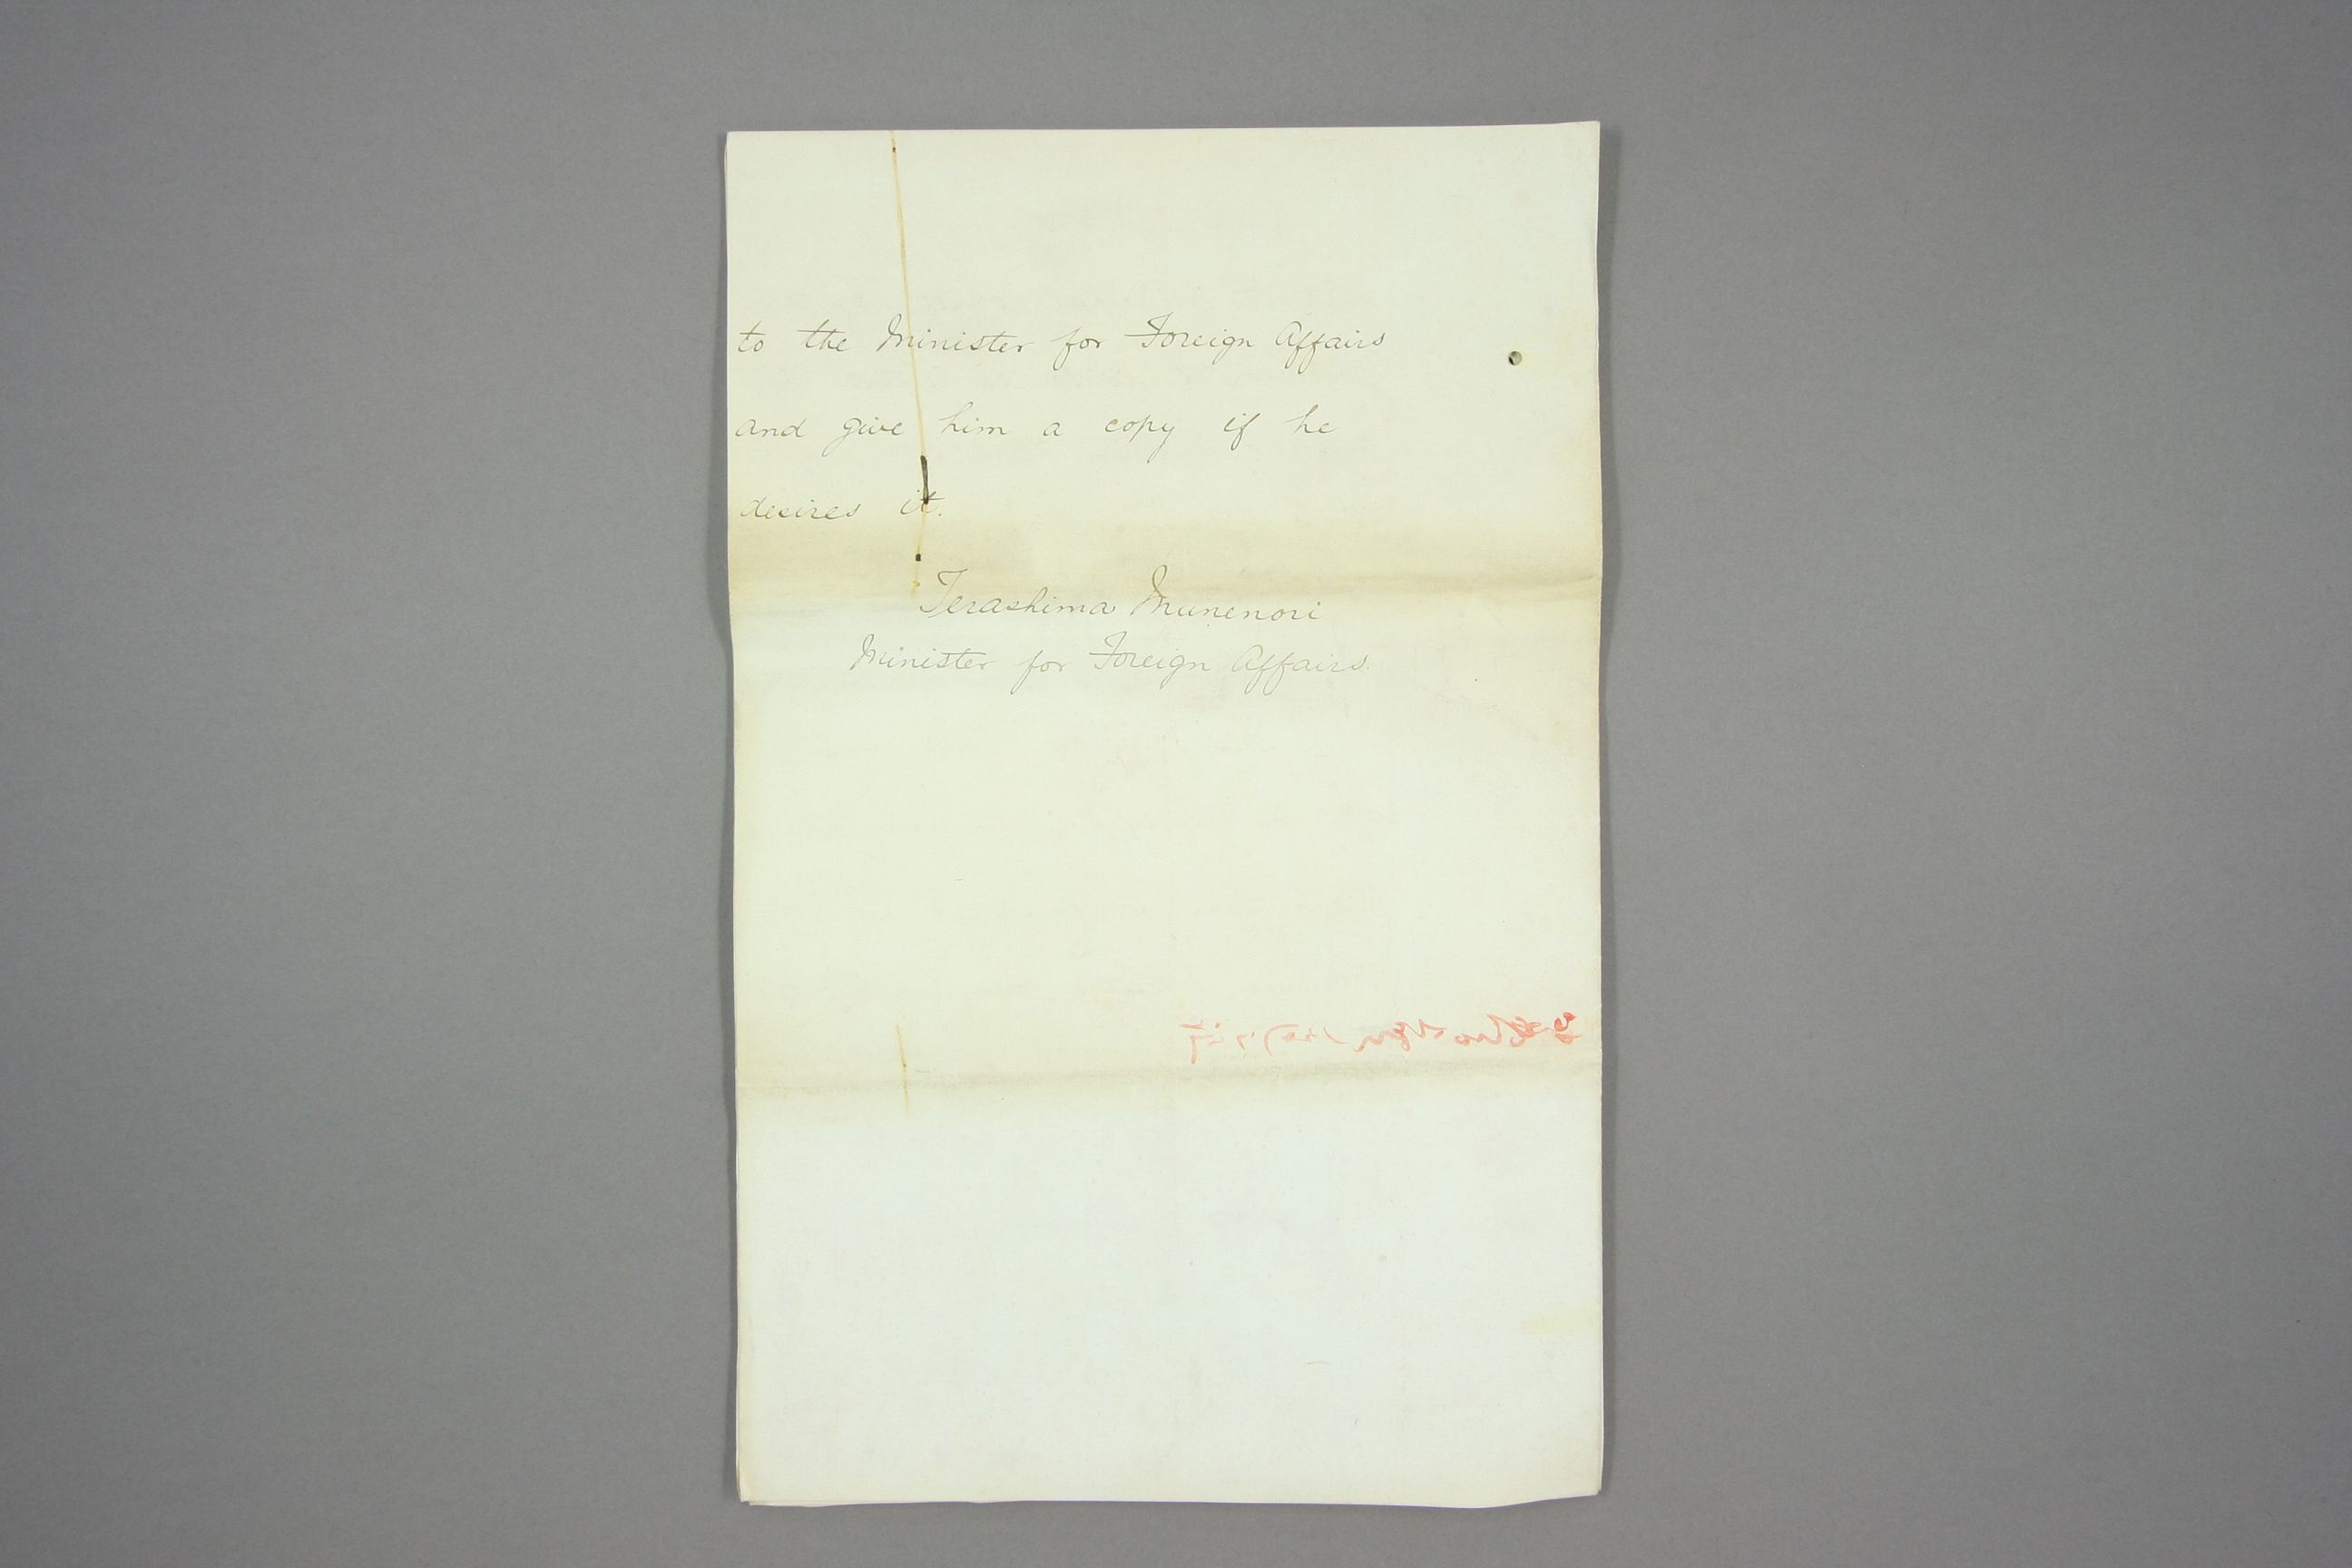 to the Minister for Foreign Affairs
and give him a copy if he
desires it.
Terashima Munenori
Minister for Foreign Affairs.